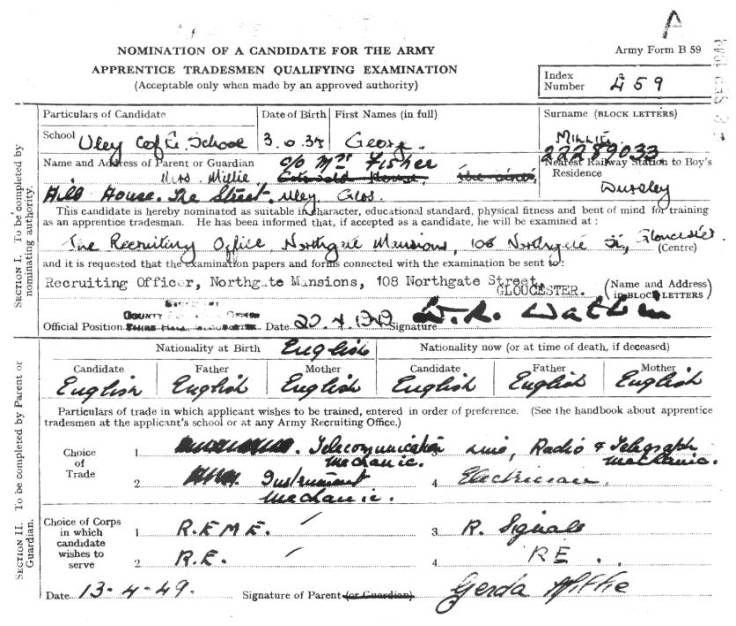 A
NOMINATION OF A CANDIDATE FOR THE ARMY
Army Form B 59
APPRENTICE TRADESMEN QUALIFYING EXAMINATION
(Acceptable only when made by an approved authority)
Index Number 459
SECTION I. To be completed by nominating authority.
Particulars of Candidate
Date of Birth
First Names (in full)
Surname (BLOCK LETTERS)
School Uley C of E. School
George.
MILLIE
22289033
Name and Address of Parent or Guardian
c/o Mrs Fisher
Nearest Railway Station to Boy's Residence
Mrs. Millie
Dursley
Hill House. The Street. Uley, Glos.
This candidate is hereby nominated as suitable in character, educational standard, physical fitness and bent of mind for training
as an apprentice tradesman. He has been informed that, if accepted as a candidate, he will be examined at :
The Recruiting Office, Northgate Mansions, 108 Northgate St, Gloucester
(Centre)
and it is requested that the examination papers and forms connected with the examination be sent to :
Recruiting Officer, Northgate Mansions, 108 Northgate Street,
GLOUCESTER.
(Name and Address in BLOCK LETTERS)
Official Position
COUNTY
Date 20.4.1949
Signature
SECTION II. To be completed by Parent or Guardian.
Nationality at Birth English
Nationality now (or at time of death, if deceased)
Candidate Father Mother Candidate Father Mother
English English English English English English
Particulars of trade in which applicant wishes to be trained, entered in order of preference. (See the handbook about apprentice
tradesmen at the applicant's school or at any Army Recruiting Office.)
Choice of Trade
1 Telecommunication mechanic.
Line, Radio & Telegraph mechanic.
2 Instrument mechanic.
4 Electrician.
Choice of Corps in which candidate wishes to serve
1 R.E.M.E.
3 R. Signals
2 R.E.
4 RE.
Date 13-4-49.
Signature of Parent (or Guardian) Gerda Millie